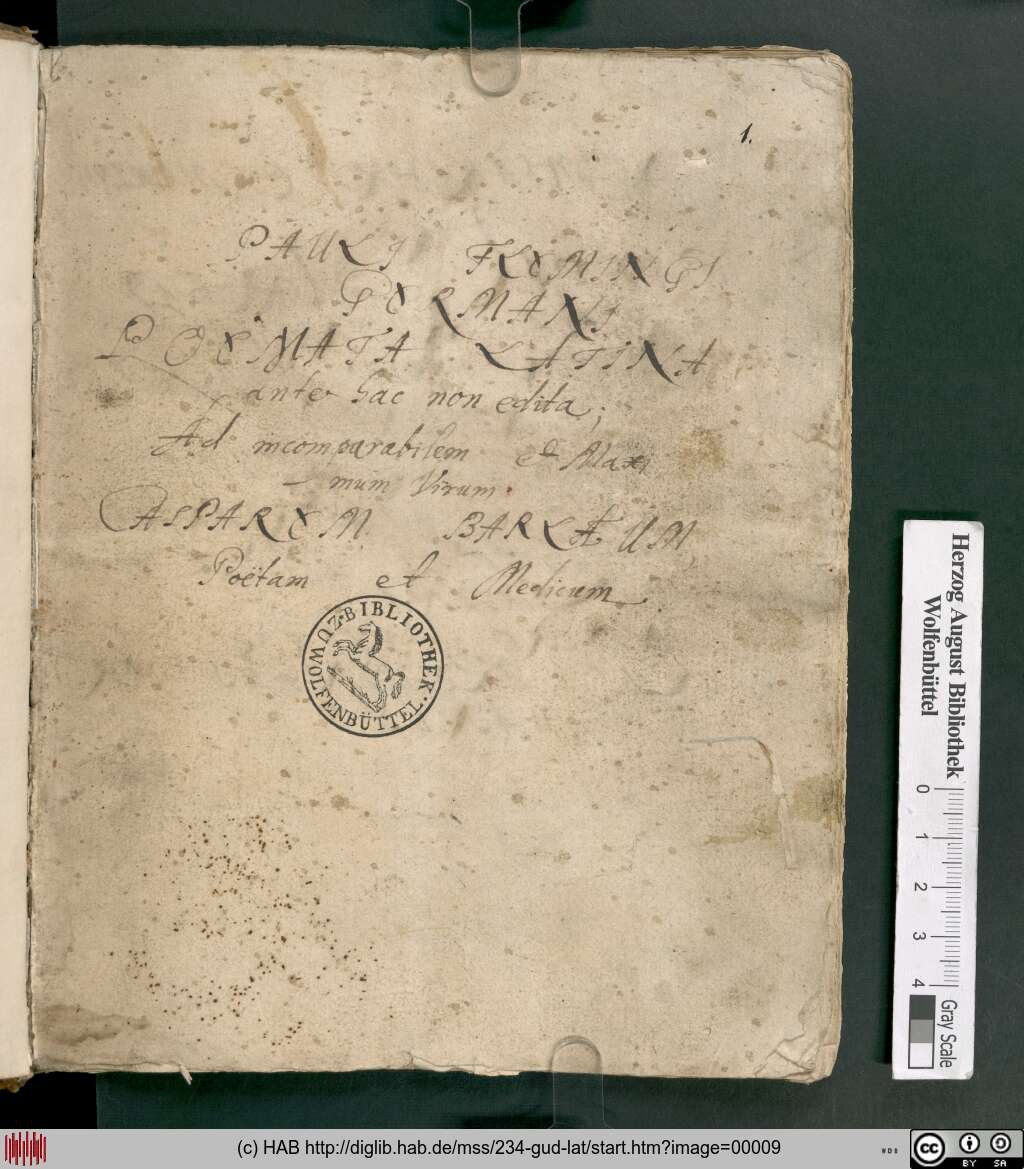 1.
PAULI FLEMINGI
GERMANI
POEMATA LATINA
ante hac non edita;
Ad incomparabilem et Maxi
mum Virum.
CASPAREM BARLÆUM
Poëtam et Medicum
BIBLIOTHEK. ZU WOLFENBÜTTEL.
Herzog August Bibliothek
Wolfenbüttel
0
1
2
3
4
Gray Scale
(c) HAB http://diglib.hab.de/mss/234-gud-lat/start.htm?image=00009
WDB
cc BY SA